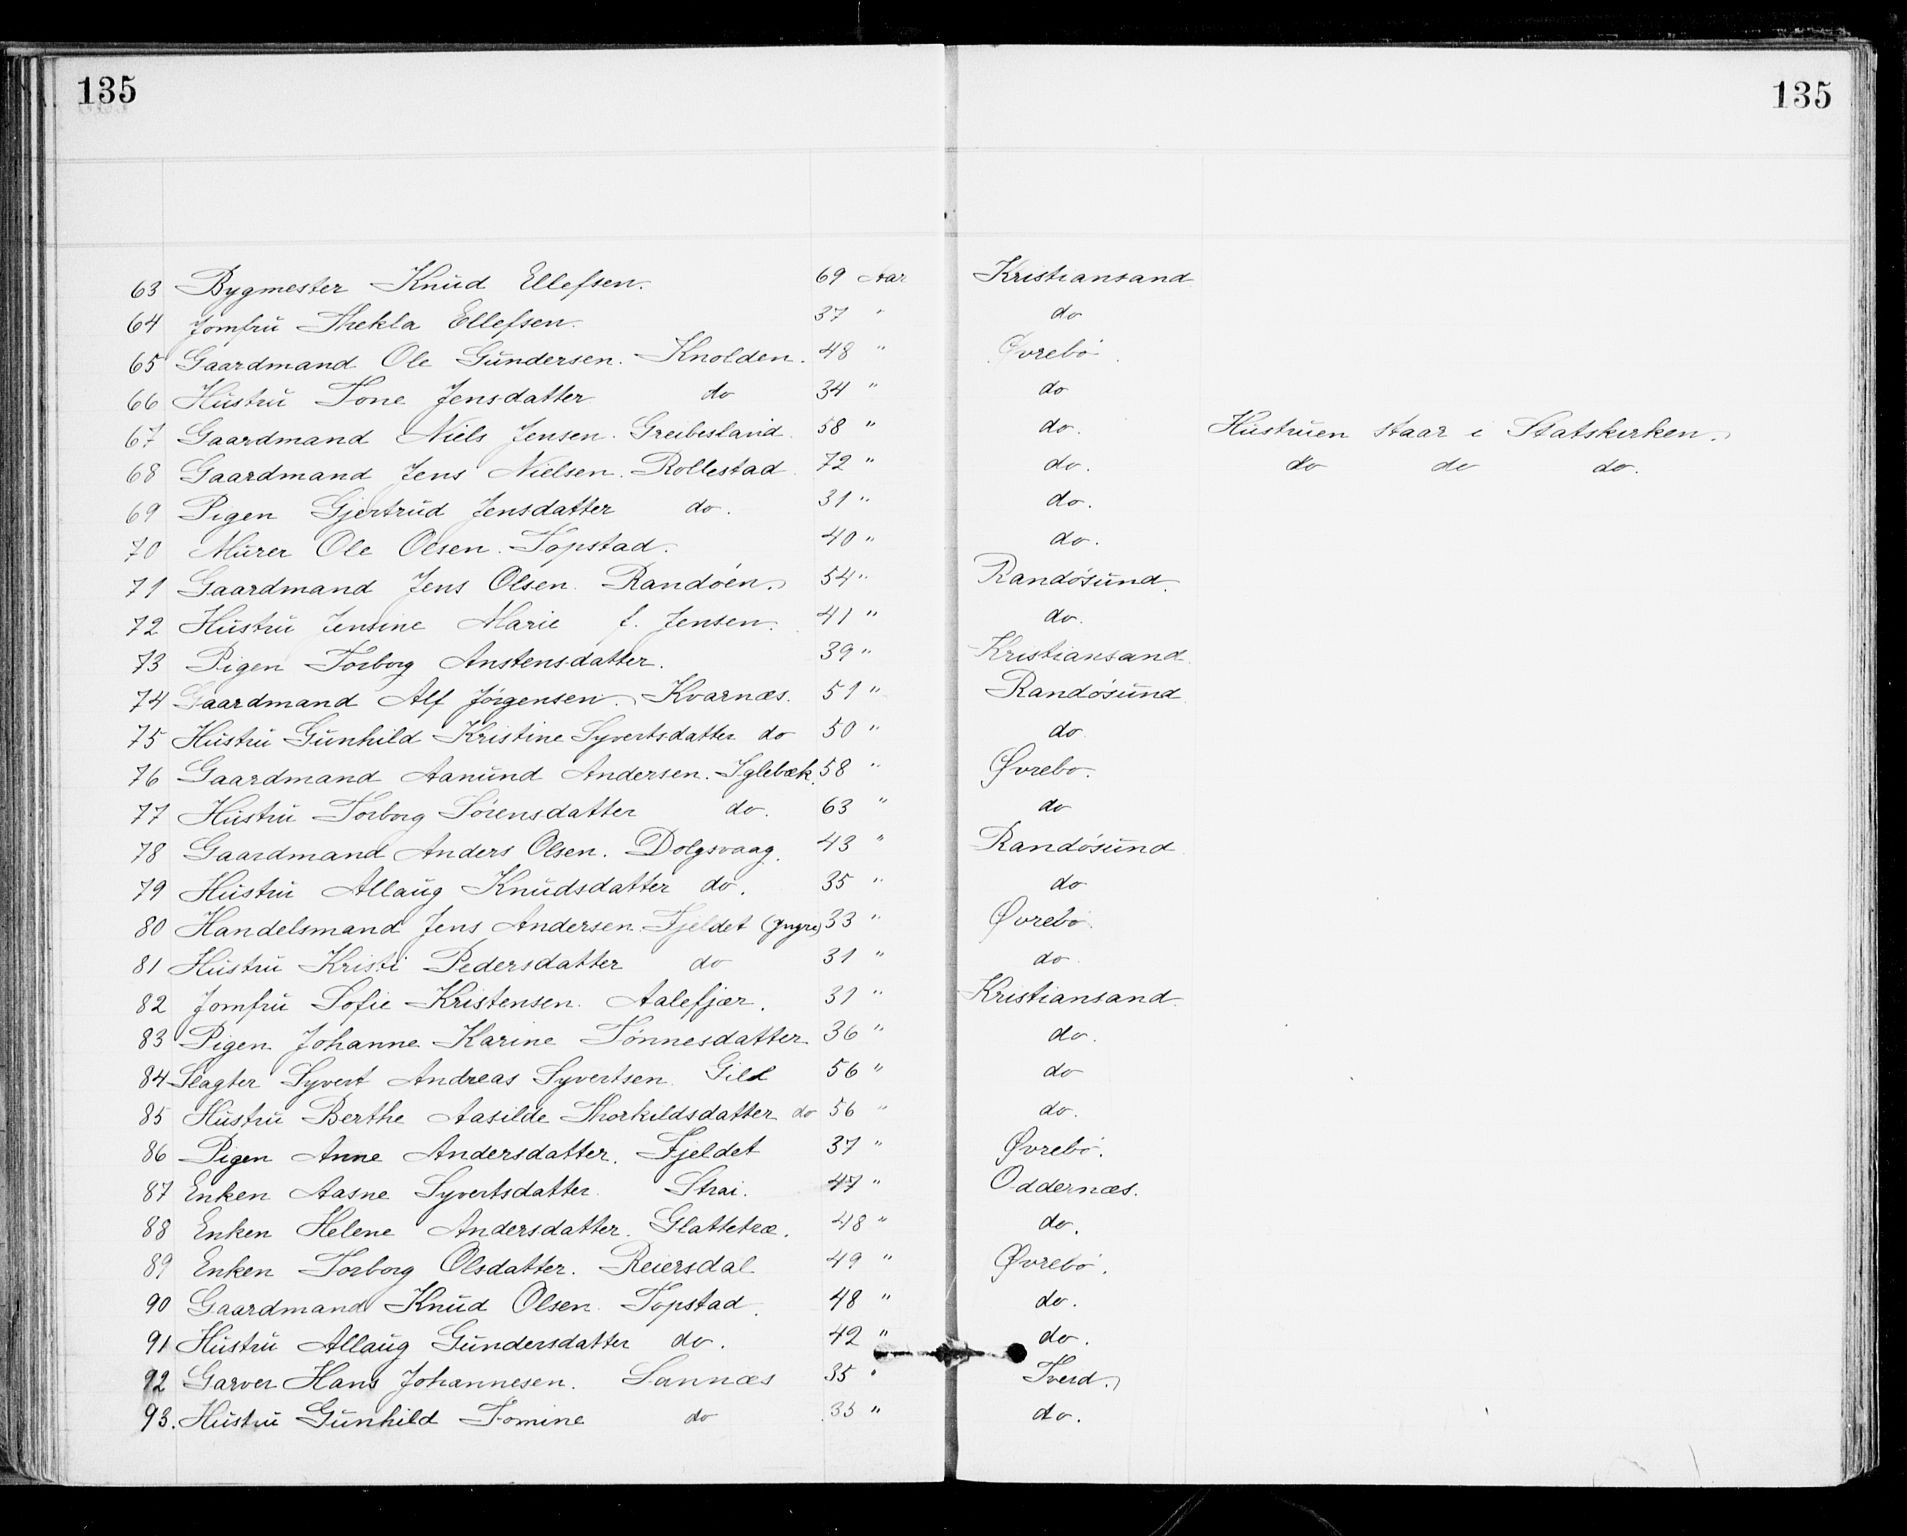 135 135
63 Bygmester Knud Ellefsen. 69 Aar Kristiansand
64 Jomfru Thekla Ellefsen. 37 " do
65 Gaardmand Ole Gundersen. Knolden. 48 " Øvrebö.
66 Hustru Tone Jensdatter do 34 " do
67 Gaardmand Niels Jensen. Greibesland. 58 " do. Hustruen staar i Statskirken.
68 Gaardmand Jens Nielsen. Rollestad 72 " do. do do do.
69 Pigen Gjertrud Jensdatter do. 31 " do.
70 Murer Ole Olsen. Topstad. 40 " do.
71 Gaardmand Jens Olsen. Randöen. 54 " Randösund.
72 Hustru Jensine Marie f. Jensen. 41 " do.
73 Pigen Torborg Anstensdatter. 39 " Kristiansand
74 Gaardmand Alf Jörgensen. Kvarnæs. 51 " Randösund
75 Hustru Gunhild Kristine Syvertsdatter do 50 " do
76 Gaardmand Aanund Andersen. Iglebæk. 58 " Øvrebo.
77 Hustru Torborg Sörensdatter do. 63 " do
78 Gaardmand Anders Olsen. Dolgsvaag. 43 " Randösund
79 Hustru Allaug Knudsdatter do. 35 " do
80 Handelsmand Jens Andersen Fjeldet (Yngre) 33 " Øvrebö.
81 Hustru Kristi Pedersdatter do 31 " do.
82 Jomfru Sofie Kristensen. Aalefjær. 31 " Kristiansand.
83 Pigen Johanne Karine Tönnesdatter 36 " do.
84 Slagter Syvert Andreas Syvertsen. Gill 56 " do
85 Hustru Berthe Aasilde Thorkildsdatter do 56 " do.
86 Pigen Anne Andersdatter. Fjeldet 37 " Øvrebö.
87 Enken Aasne Syvertsdatter. Strai. 47 " Oddernæs.
88 Enken Helene Andersdatter. Glattetræ. 48 " do.
89 Enken Torborg Olsdatter. Reiersdal 49 " Øvrebö.
90 Gaardmand Knud Olsen. Topstad. 48 " do.
91 Hustru Allaug Gundersdatter do. 42 " do.
92 Garver Hans Johannesen. Sannæs 35 " Tverd.
93. Hustru Gunhild Tomine do 35 " do.